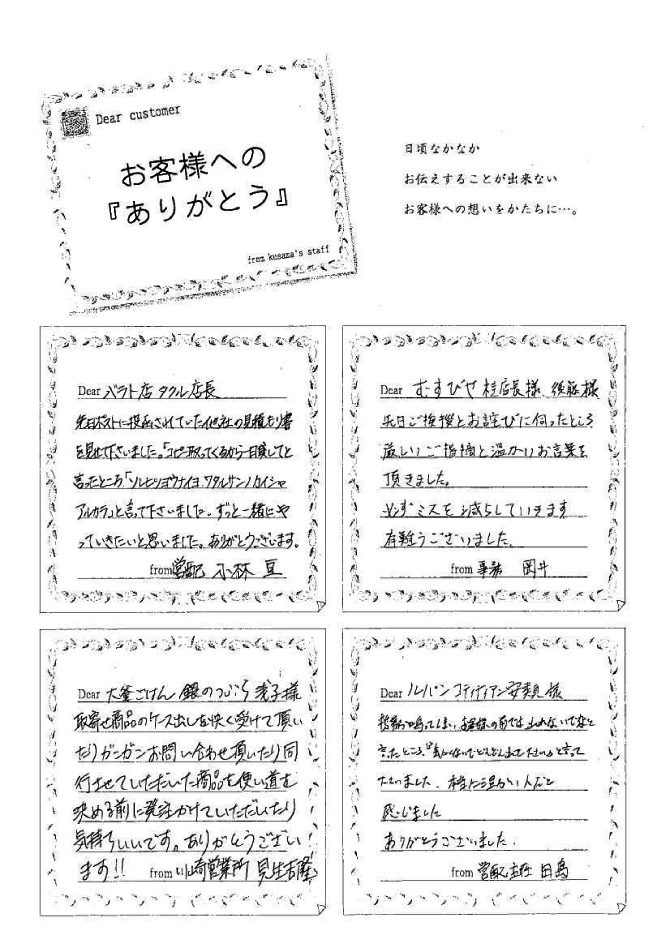 Dear customer
お客様への
『ありがとう』
from kusaza's staff
日頃なかなか
お伝えすることが出来ない
お客様への想いをかたちに…。
Dear バラト店 タクル店長
先日ポストに投函されていた他社の見積もり書
を見せて下さいました。「コピー取ってくるから一日貸してと
言ったところ「ソレヒツヨウナイヨ ワタルサンノカイシャ
アルカラ」と言って下さいました。ずっと一緒にや
っていきたいと思いました。ありがとうございます。
from 営配 小林 亘
Dear むすびや 桂店長様、後藤様
先日ご挨拶とお詫びに伺ったところ
厳しいご指摘と温かいお言葉を
頂きました。
必ずミスを減らしていきます
有難うございました。
from 事務 岡井
Dear 大釜ごはん 銀のつぶら 様
取寄せ商品のケース出しを快く受けて頂い
たりガンガンお問い合わせ頂いたり同
行させていただいた商品も使い道を
決める前に発注かけていただいたり
気持ちいいです。ありがとうござい
ます!! from 川崎営業所
Dear ルパン 様
お客様の前では
ところ、
下さいました。本当に温かい人だと
感じました
ありがとうございました。
from 営配主任 田島